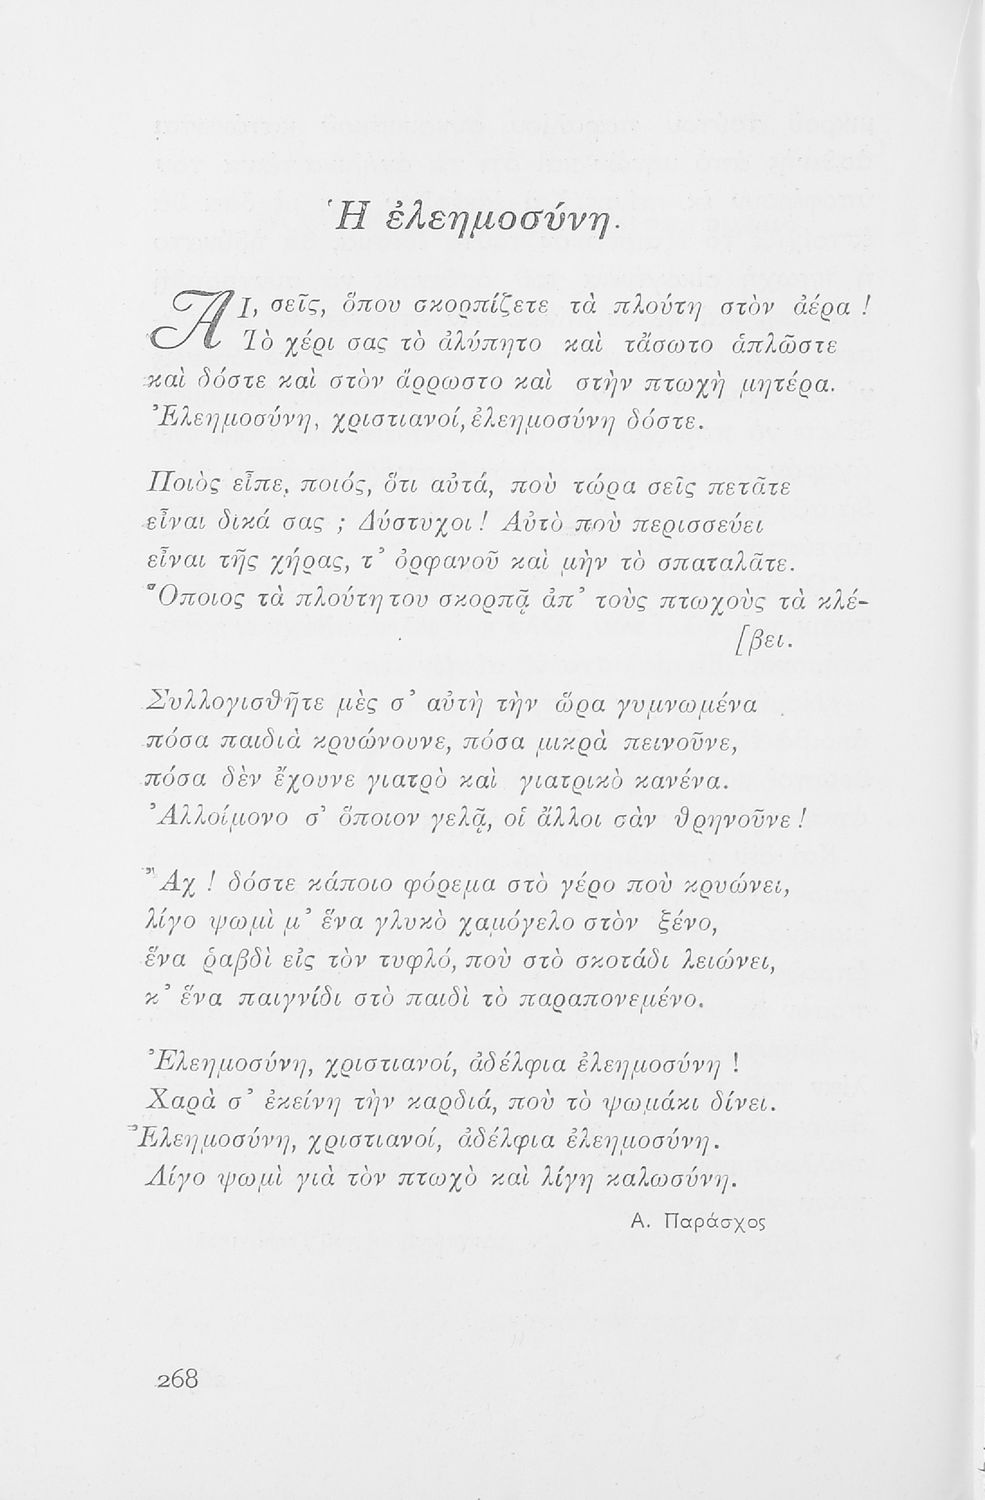 Ἡ ἐλεημοσύνη.
ΑΙ, σεῖς, ὅπου σκορπίζετε τὰ πλούτη στὸν ἀέρα !
Τὸ χέρι σας τὸ ἀλύπητο καὶ τἄσωτο ἁπλῶστε
καὶ δόστε καὶ στὸν ἄρρωστο καὶ στὴν πτωχὴ μητέρα.
Ἐλεημοσύνη, χριστιανοί, ἐλεημοσύνη δόστε.
Ποιὸς εἶπε, ποιός, ὅτι αὐτά, ποὺ τώρα σεῖς πετᾶτε
εἶναι δικά σας ; Δύστυχοι ! Αὐτὸ ποὺ περισσεύει
εἶναι τῆς χήρας, τ’ ὀρφανοῦ καὶ μὴν τὸ σπαταλᾶτε.
Ὅποιος τὰ πλούτη του σκορπᾷ ἀπ’ τοὺς πτωχοὺς τὰ κλέ-
[βει.
Συλλογισθῆτε μὲς σ’ αὐτὴ τὴν ὥρα γυμνωμένα
πόσα παιδιὰ κρυώνουνε, πόσα μικρὰ πεινοῦνε,
πόσα δὲν ἔχουνε γιατρὸ καὶ γιατρικὸ κανένα.
Ἀλλοίμονο σ’ ὅποιον γελᾷ, οἱ ἄλλοι σὰν θρηνοῦνε !
Ἄχ ! δόστε κάποιο φόρεμα στὸ γέρο ποὺ κρυώνει,
λίγο ψωμὶ μ’ ἕνα γλυκὸ χαμόγελο στὸν ξένο,
ἕνα ραβδὶ εἰς τὸν τυφλό, ποὺ στὸ σκοτάδι λειώνει,
κ’ ἕνα παιγνίδι στὸ παιδὶ τὸ παραπονεμένο.
Ἐλεημοσύνη, χριστιανοί, ἀδέλφια ἐλεημοσύνη !
Χαρὰ σ’ ἐκείνη τὴν καρδιά, ποὺ τὸ ψωμάκι δίνει.
Ἐλεημοσύνη, χριστιανοί, ἀδέλφια ἐλεημοσύνη.
Λίγο ψωμὶ γιὰ τὸν πτωχὸ καὶ λίγη καλωσύνη.
Α. Παράσχος
268